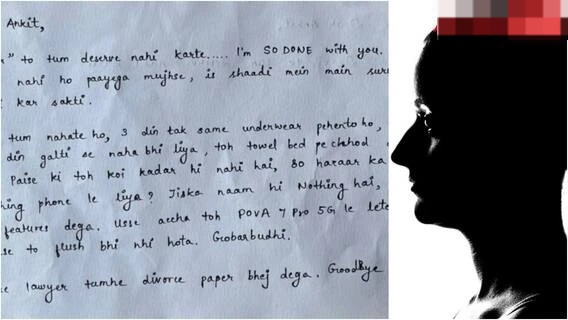 Ankit,
" to tum deserve nahi karte..... I'm SO DONE with you.
nahi ho paayega mujhse, is shaadi mein main
kar sakti.
tum nahate ho, 3 din tak same underwear pehente ho,
din galti se naha bhi liya, toh towel bed pe chhod
Paise ki toh koi kadar hi nahi hai, 80 hazaar ka
phone le liya? Jiska naam hi Nothing hai,
features dega. Usse accha toh POVA 7 Pro 5G le lete
se to flush bhi nhi hota. Gobarbudhi.
lawyer tumhe divorce paper bhej dega. Goodbye